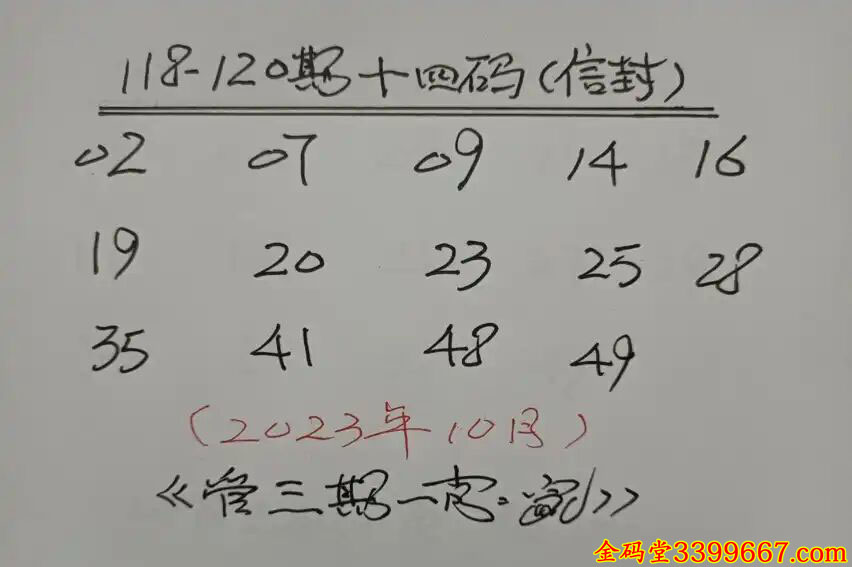 118-120期十四码(信封)
02 07 09 14 16
19 20 23 25 28
35 41 48 49
(2023年10月)
《管三期一肖
金码堂3399667.com